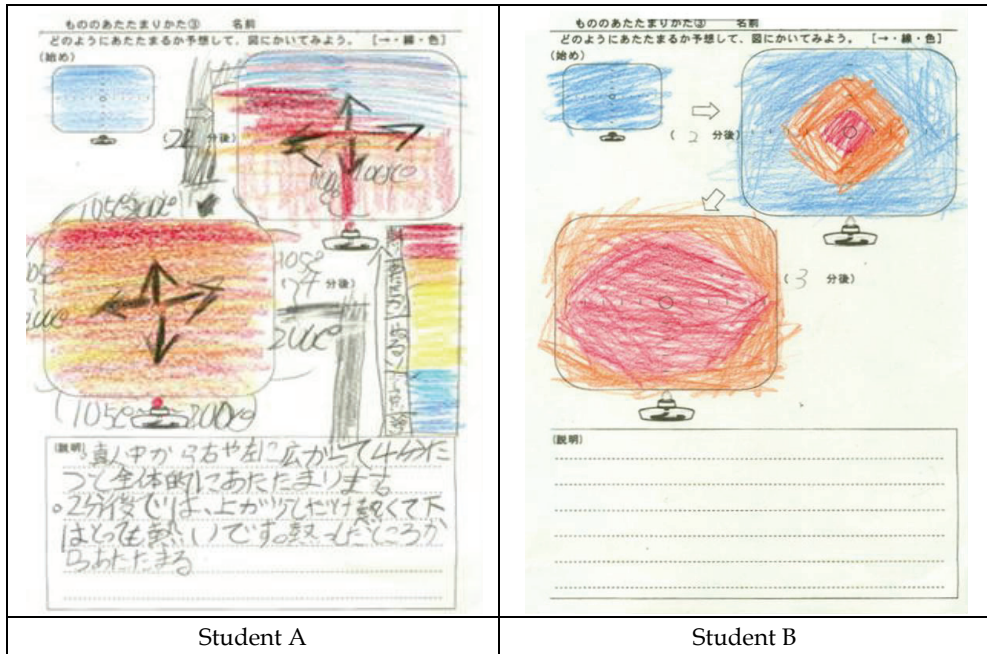 もののあたたまりかた③ 名前
どのようにあたたまるか予想して、図にかいてみよう。 [→・線・色]
(始め)
(2 分後)
100℃
105℃ 200℃
105℃
200℃
(4 分後)
200℃
(105℃ 200℃)
(説明)
真ん中から右や左に広がって4分た
つて全体的にあたたまります
・2分後では、上が少しだけ熱くて下
はとっても熱いです。熱したところか
らあたたまる
Student A
もののあたたまりかた③ 名前
どのようにあたたまるか予想して、図にかいてみよう。 [→・線・色]
(始め)
(2 分後)
(3 分後)
(説明)
Student B